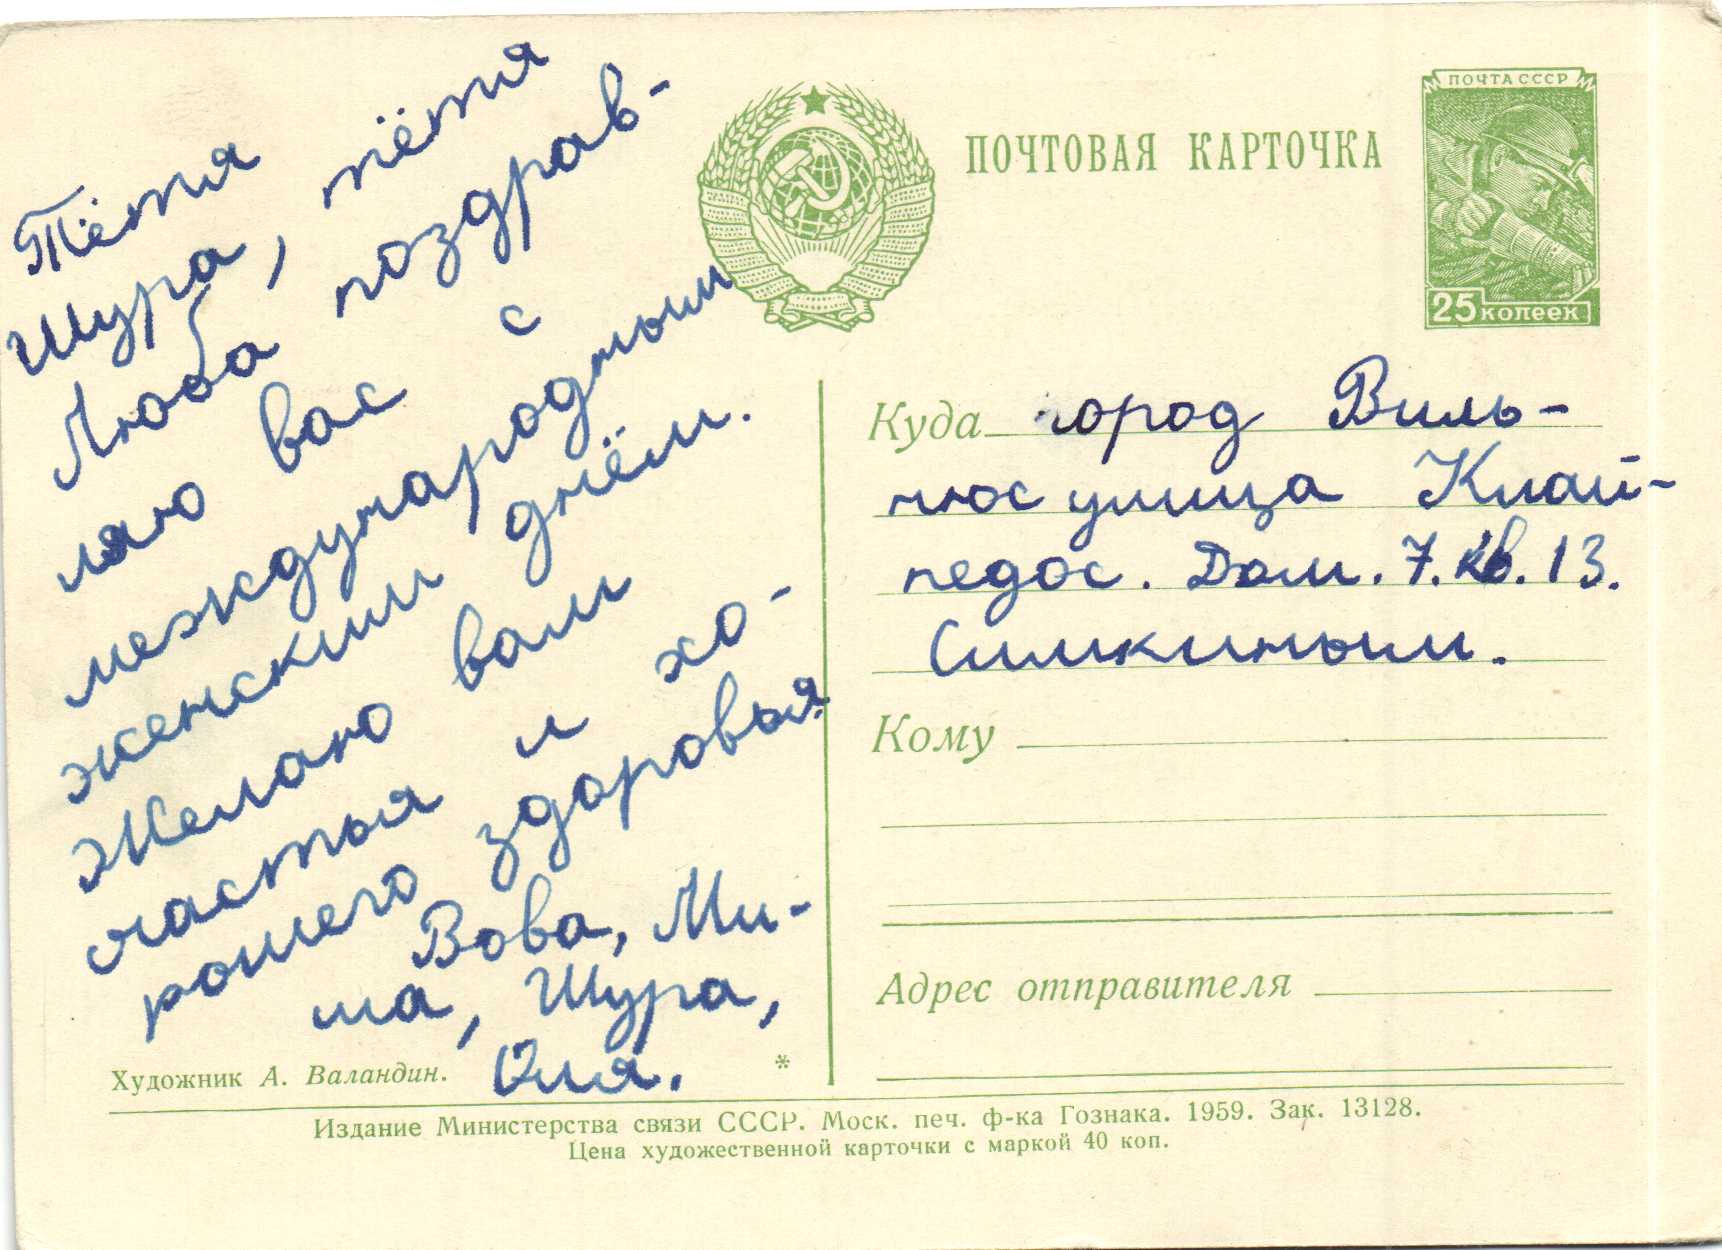 Тётя
Шура, тётя
Люба поздрав-
ляю вас с
международным
женским днём.
Желаю вам
счастья и хо-
рошего здоровья
Вова, Ми-
ша, Шура,
Оля.
Художник А. Валандин.
*
ПОЧТОВАЯ КАРТОЧКА
ПОЧТА СССР
25 копеек
Куда город Виль-
нюс улица Клай-
педос. Дом. 7. кв. 13.
Симкиным.
Кому
Адрес отправителя
Издание Министерства связи СССР. Моск. печ. ф-ка Гознака. 1959. Зак. 13128.
Цена художественной карточки с маркой 40 коп.